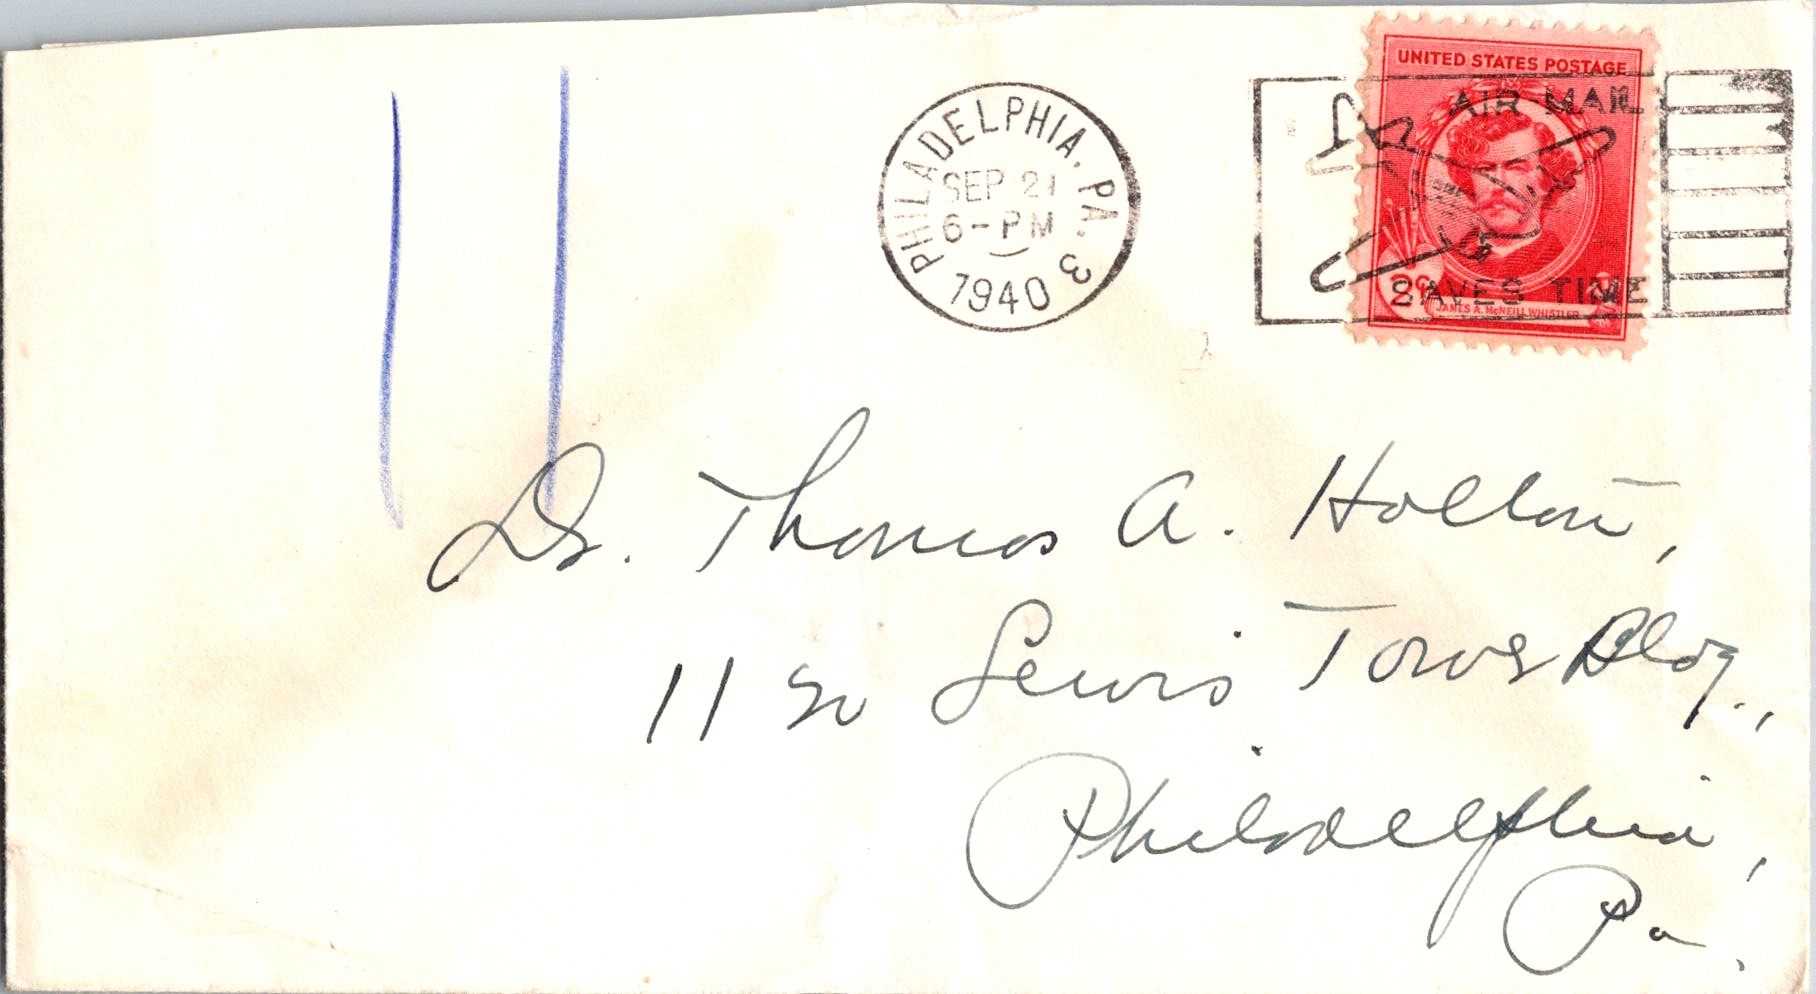 PHILADELPHIA, PA. 3
SEP 21
6-PM
1940
UNITED STATES POSTAGE
AIR MAIL
SAVES TIME
2¢
JAMES A. McNEILL WHISTLER
Dr. Thomas A. Hollow,
Lewis Tower Bldg.,
Philadelphia,
Pa.